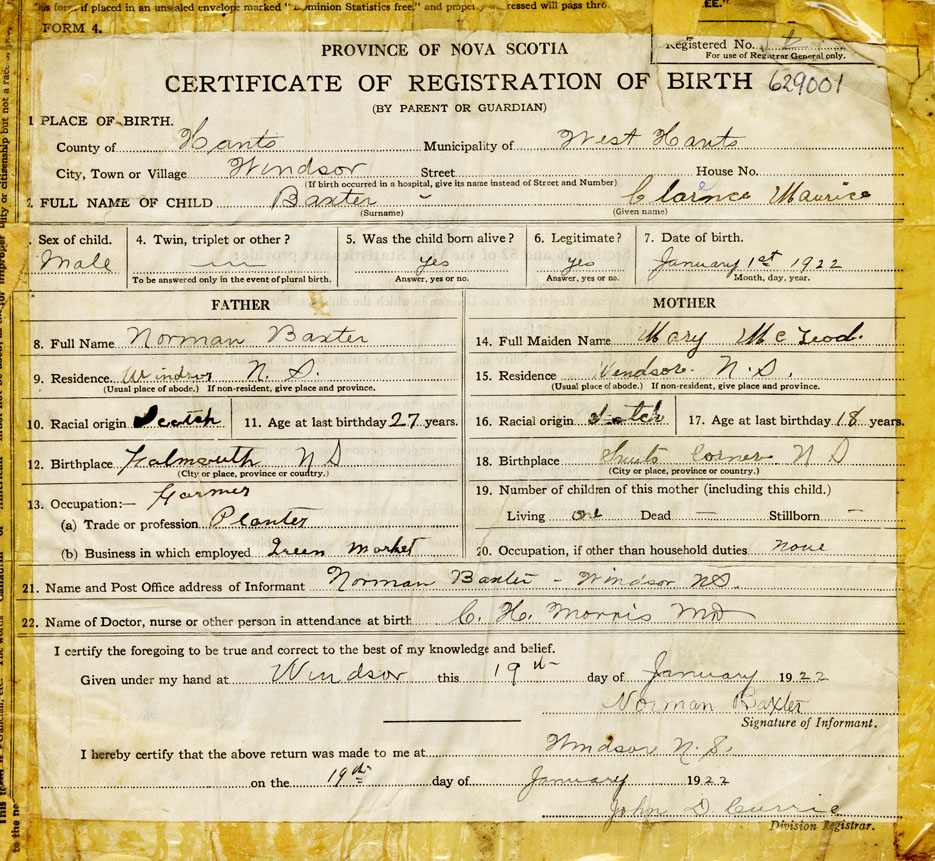 his form, if placed in an unsealed envelope marked "Dominion Statistics free," and properly addressed will pass through
EE."
FORM 4.
PROVINCE OF NOVA SCOTIA
Registered No.
For use of Registrar General only.
CERTIFICATE OF REGISTRATION OF BIRTH 629001
(BY PARENT OR GUARDIAN)
1 PLACE OF BIRTH.
County of Hants Municipality of West Hants
City, Town or Village Windsor Street House No.
(If birth occurred in a hospital, give its name instead of Street and Number)
2. FULL NAME OF CHILD Baxter - Clarence Maurice
(Surname) (Given name)
Sex of child. 4. Twin, triplet or other? 5. Was the child born alive? 6. Legitimate? 7. Date of birth.
Male — yes yes January 1st 1922
To be answered only in the event of plural birth. Answer, yes or no. Answer, yes or no. Month, day, year.
FATHER MOTHER
8. Full Name Norman Baxter 14. Full Maiden Name Mary McLeod.
9. Residence. Windsor N.S. 15. Residence Windsor N.S.
(Usual place of abode.) If non-resident, give place and province. (Usual place of abode.) If non-resident, give place and province.
10. Racial origin Scotch 11. Age at last birthday 27 years. 16. Racial origin Scotch 17. Age at last birthday 18 years.
12. Birthplace Falmouth N S 18. Birthplace Corner N S
(City or place, province or country.) (City or place, province or country.)
13. Occupation:— Farmer 19. Number of children of this mother (including this child.)
(a) Trade or profession Planter Living one Dead — Stillborn —
(b) Business in which employed Green Market 20. Occupation, if other than household duties. none
21. Name and Post Office address of Informant Norman Baxter - Windsor NS
22. Name of Doctor, nurse or other person in attendance at birth C. H. Morris MD
I certify the foregoing to be true and correct to the best of my knowledge and belief.
Given under my hand at Windsor this 19th day of January 1922
Norman Baxter
Signature of Informant.
I hereby certify that the above return was made to me at Windsor N.S.
on the 19th day of January 1922
John D Currie
Division Registrar.